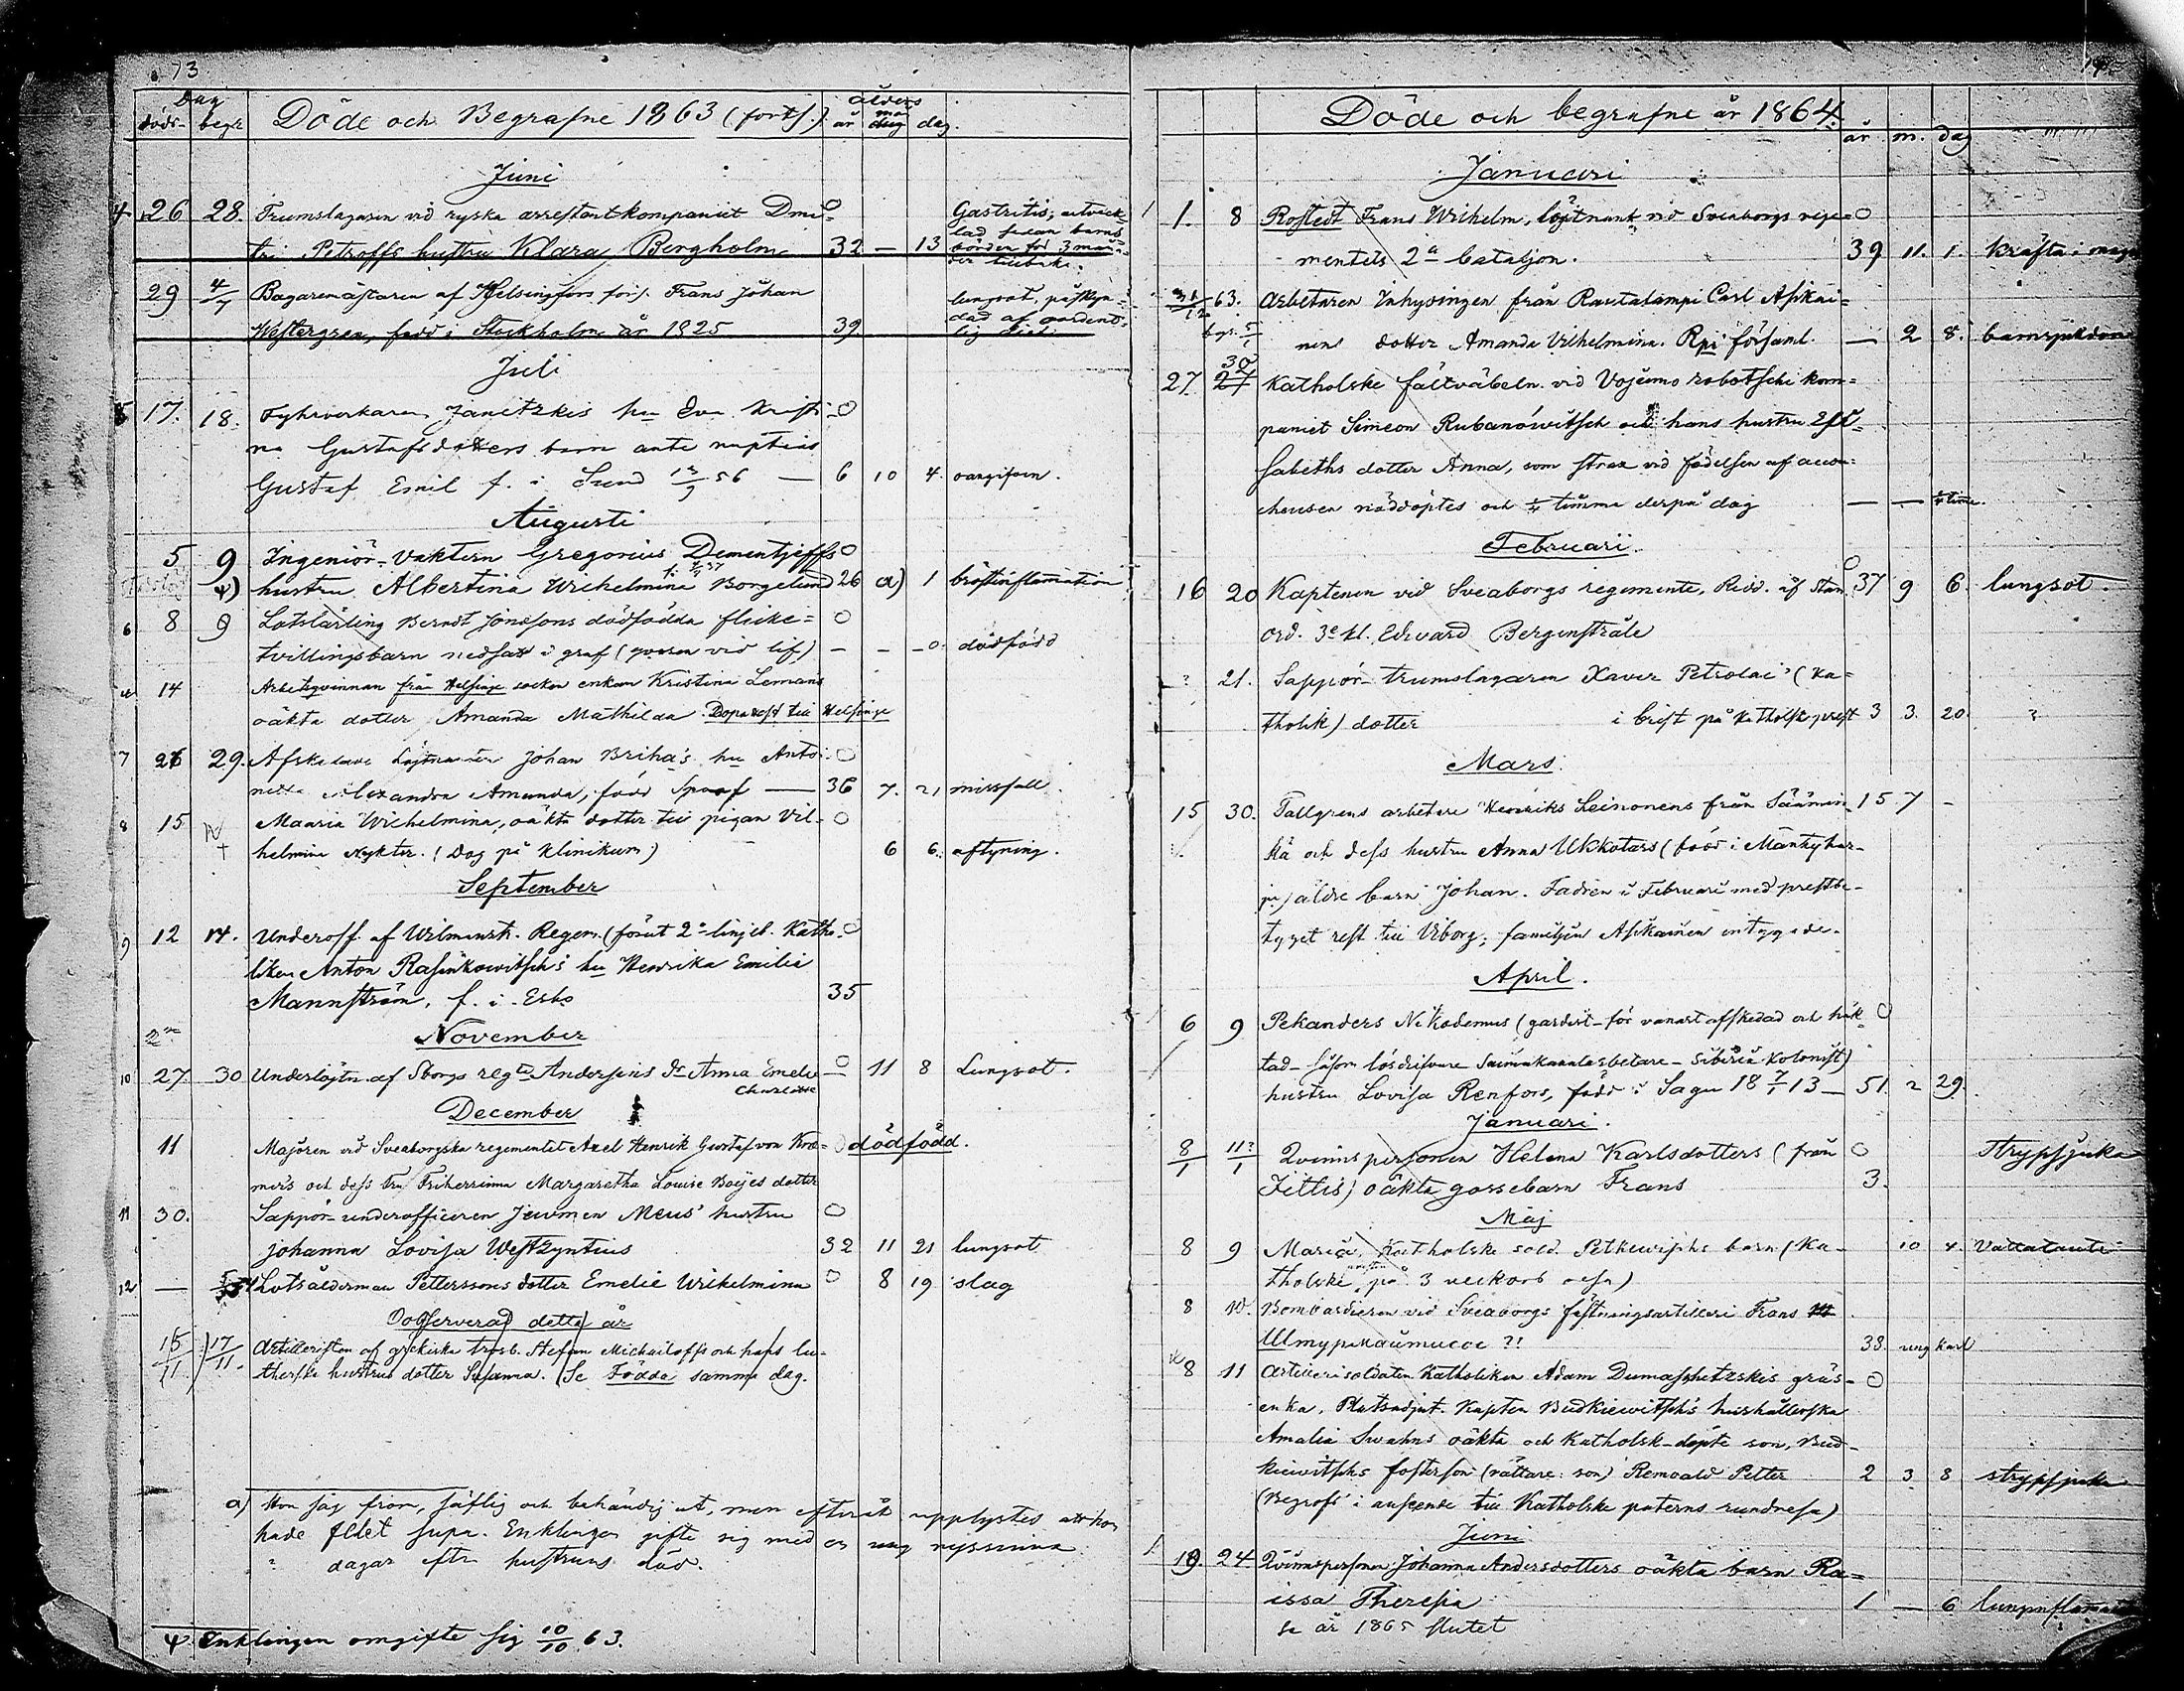 73
Dag
döds- begr.
Döde och Begrafne 1863 (forts.)
ålders
år mån dag.
Juni
4 26 28. Trumslagaren vid ryska arrestantkompaniet Dmi- 0
tri Petroffs hustru Klara Bergholm 32 — 13
Gastritis, utveck-
lad sedan barns
börden för 3 måna-
der tillbaka.
29 4/7 Bagaremästaren af Helsingfors förs. Frans Johan
Westergren, född i Stockholm år 1825 39.
lungsot, påskyn-
dad af oordent-
lig diet.
Juli
5 17. 18. Fyhrverkaren Janetzkis hu Eva Kristi- 0
na Gustafsdotters barn ante nuptias
Gustaf Emil f. i Sund 13/9 56 — 6 10 4. oangifven.
Augusti
5 9 Ingeniör-Vaktern Gregorius Dementjeffs 0
ψ) hustru Albertina Wilhelmina Borgelund 26 a) 1 bröstinflamation
6 8 9 Lotslärling Berndt Jonssons dödfödda flicke= 0
tvillingsbarn nedsatt i graf (qvaran vid lif) — — — 0 dödfödd
14 Arbetsqvinnan från Helsinge socken enkan Kristina Lemans
oäkta dotter Amanda Mathilda. Dopattest till Helsinge
7 26 29. Afskedade Löjtnanten Johan Briha's hu Anto- 0
netta Alexandra Amanda, född Spoof — 36 7. 21 missfall.
8 15 Maaria Wilhelmina, oäkta dotter till pigan Vil- 0
helmina Nykter. (Dog på Klinikum) 6 6. aftyning.
September
9 12 14. Underoff. af Wilmanstr. Regem. (förut 2a linjeb. Katho- 0
liken Anton Rasinkowitsch's hu Henrika Emilia
Mannström, f. i Esbo 35
November
10 27. 30 Underlöjtn. af Sborgs reg. Andersins dr Anna Emelie 0 11 8 Lungsot.
Charlotte
December
11 Majoren vid Sveaborgska regementet Axel Henrik Gustaf von Kræ- 0 dödfödd.
mers och dess Fru Friherrinna Margaretha Louise Boijes dotter
11 30. Sappör-underofficeren Jewmen Meus' hustru 0
Johanna Lovisa Westzyntius 32 11 21 lungsot
12 — Lotsålderman Petterssons dotter Emelie Wilhelmina 0 8 19 slag
Oobserverad detta år
15/11 17/11. Artilleristen af grekiska trosb. Stefan Michailoffs och hans lu-
therska hustrus dotter Susanna. (Se Födda samma dag.
a) Hon såg from, saflig och behändig ut, men efteråt upplystes att hon
hade fått supa. Enklingen gifte sig med en ung ryssinna
? dagar efter hustruns död.
ψ Enklingen omgifte sig 10/10 63.
Döde och begrafne år 1864.
år m. dag
Januari
1. 8 Rostedt Frans Wilhelm, löjtnant vid Sveaborgs rege= 0
mentets 2a bataljon. 39 11. 1. kräfta i
31/12 63. Arbetaren Inhysingen från Rautalampi Carl Asikai=
begr. nens dotter Amanda Vilhelmina. Rpi församl. — 2 8. barnsjukdom
27. 30 27 Katholske fältväbeln vid Vojenno rabotschi kom=
paniet Simeon Rubanowitsch och hans hustru Eli-
sabeths dotter Anna, som strax vid födelsen af accou-
cheusen nöddöptes och ¼ timma derpå dog — — ¼ timme.
Februari
16 20 Kaptenen vid Sveaborgs regemente, Ridd. af Stan. 37 9 6. lungsot.
ord. 3e kl. Edvard Bergenstråle
? 21. Sappör-trumslagaren Xaver Petrolai' (Ka=
tholik) dotter i brist på Katholsk prest 3 3. 20. ?
Mars
15 30. Tallgrens arbetare Henriks Leinonens från Säämin- 15 7 -
kä och dess hustru Anna Ukkotars (född i Mäntyhar-
ju) äldre barn Johan. Fadren i Februari med prestbe-
tyget rest till Viborg; familjen Asikainen intygade.
April.
6 9 Pekanders Nikodemus (gardist - för vanart afskedad och häk- 0
tad - såsom lösdrifvare Saimakanalarbetare - Siberia Kolonist)
hustru Lovisa Renfors, född i Sagu 18 7/1 13 — 51. 2 29.
Januari.
8/1 11?/1 Qvinnspersonen Helena Karlsdotters (från 0 Strypsjuka
Jittis) oäkta gossebarn Frans 3.
Maj
8 9 Maria, Katholske sold. Petkewischs barn (Ka- 10 4.
tholske på 3 veckors resa)
8 10. Bombardieren vid Sveaborgs fästningsartilleri Frans
?! 38. ung karl
8 11 Artillerisoldaten Katholiken Adam Dumaschetzskis gräs- 0
enka, Platsadjut. Kapten Budkiewitsch's hushållerska
Amalia Swahns oäkta och Katholsk-döpte son, Bud-
kiewitschs fosterson (rättare: son) Remoald Petter 2 3 8 strypsjuka
(Begrofs i anseende till Katholske paterns rundresa)
Juni
19. 24. Qvinnspersonen Johanna Andersdotters oäkta barn Ra=
issa Theresia 1 — 6 lunginflamation
se år 1865 slutet